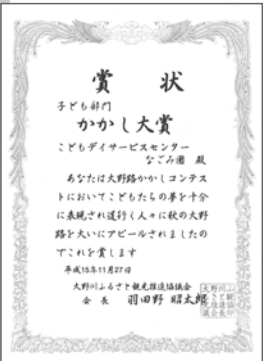 賞状
子ども部門
かかし大賞
こどもデイサービスセンター
なごみ園 殿
あなたは大野路かかしコンテス
トにおいてこどもたちの夢を十分
に表現され道行く人々に秋の大野
路を大いにアピールされましたの
でこれを賞します
平成15年11月27日
大野川ふるさと観光推進協議会
会長 羽田野 昭太郎